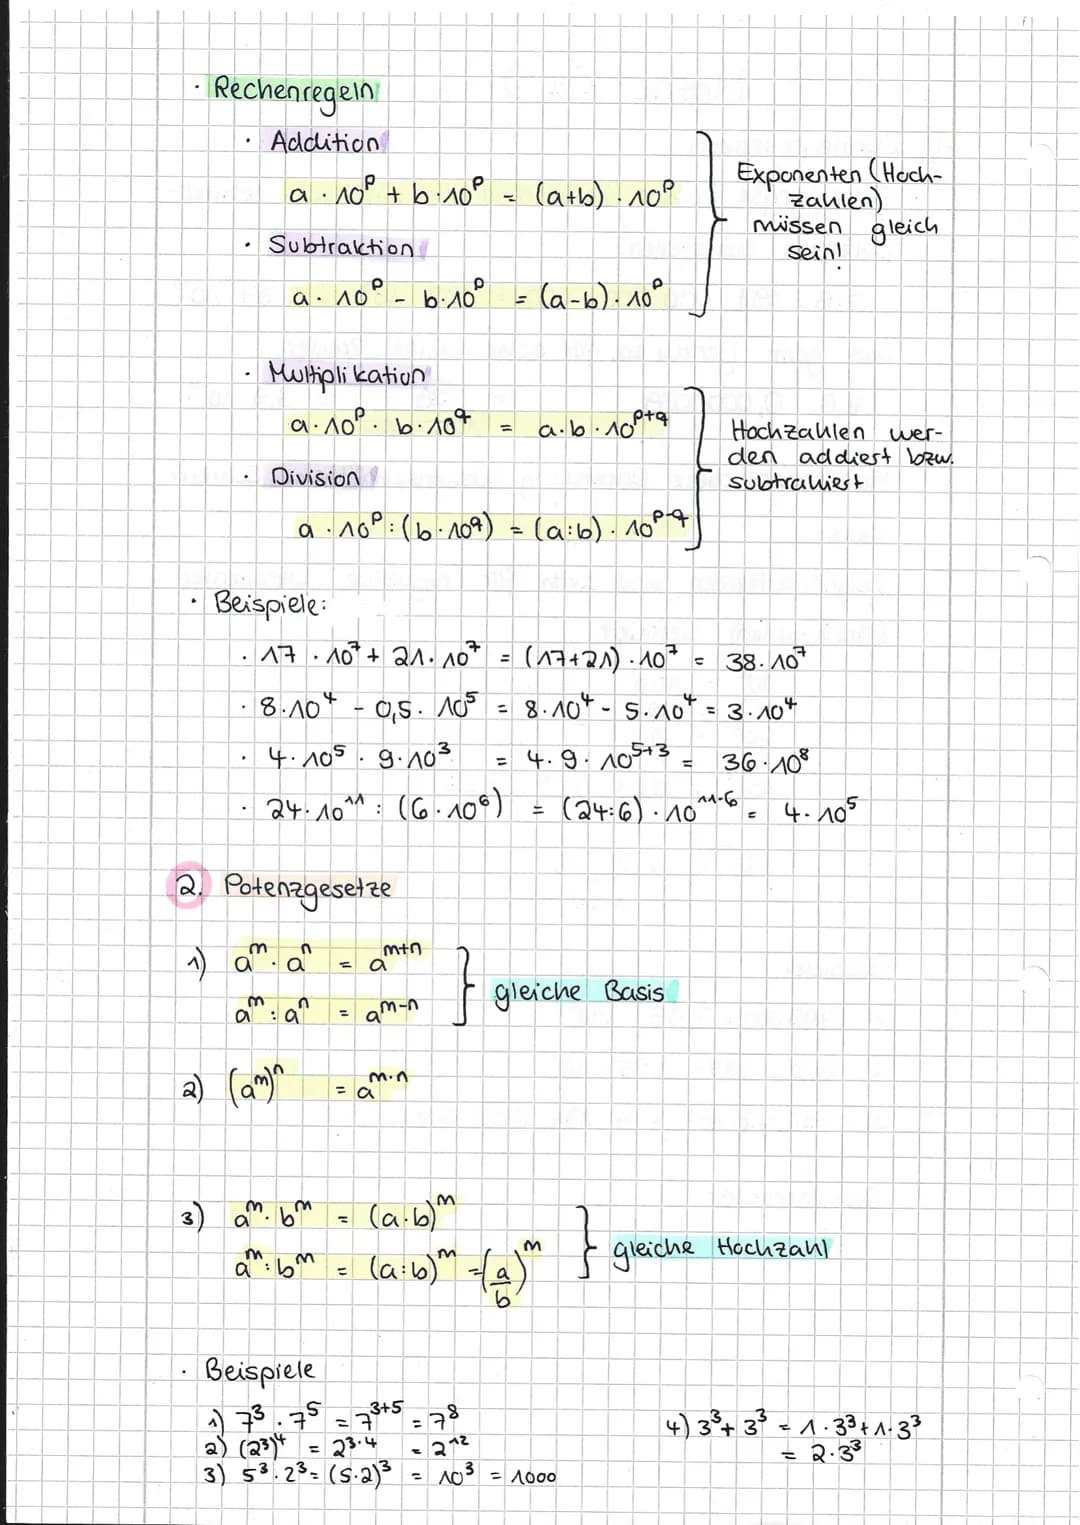 · Rechenregeln
· Addition
a · 10^p + b · 10^p = (a+b) · 10^p
Exponenten (Hoch-
zahlen)
müssen gleich
sein!
· Subtraktion
a · 10^p - b · 10^p = (a-b) · 10^p
· Multiplikation
a · 10^p · b · 10^q = a · b · 10^(p+q)
Hochzahlen wer-
den addiert bzw.
subtrahiert
· Division
a · 10^p : (b · 10^q) = (a:b) · 10^(p-q)
· Beispiele:
· 17 · 10^7 + 21 · 10^7 = (17+21) · 10^7 = 38 · 10^7
· 8 · 10^4 - 0,5 · 10^5 = 8 · 10^4 - 5 · 10^4 = 3 · 10^4
· 4 · 10^5 · 9 · 10^3 = 4 · 9 · 10^(5+3) = 36 · 10^8
· 24 · 10^11 : (6 · 10^6) = (24:6) · 10^(11-6) = 4 · 10^5
2. Potenzgesetze
1) a^m · a^n = a^(m+n)
a^m : a^n = a^(m-n)
gleiche Basis
2) (a^m)^n = a^(m·n)
3) a^m · b^m = (a·b)^m
a^m : b^m = (a:b)^m = (a/b)^m
gleiche Hochzahl
· Beispiele
1) 7^3 · 7^5 = 7^(3+5) = 7^8
2) (2^3)^4 = 2^(3·4) = 2^12
3) 5^3 · 2^3 = (5·2)^3 = 10^3 = 1000
4) 3^3 + 3^3 = 1 · 3^3 + 1 · 3^3
= 2 · 3^3